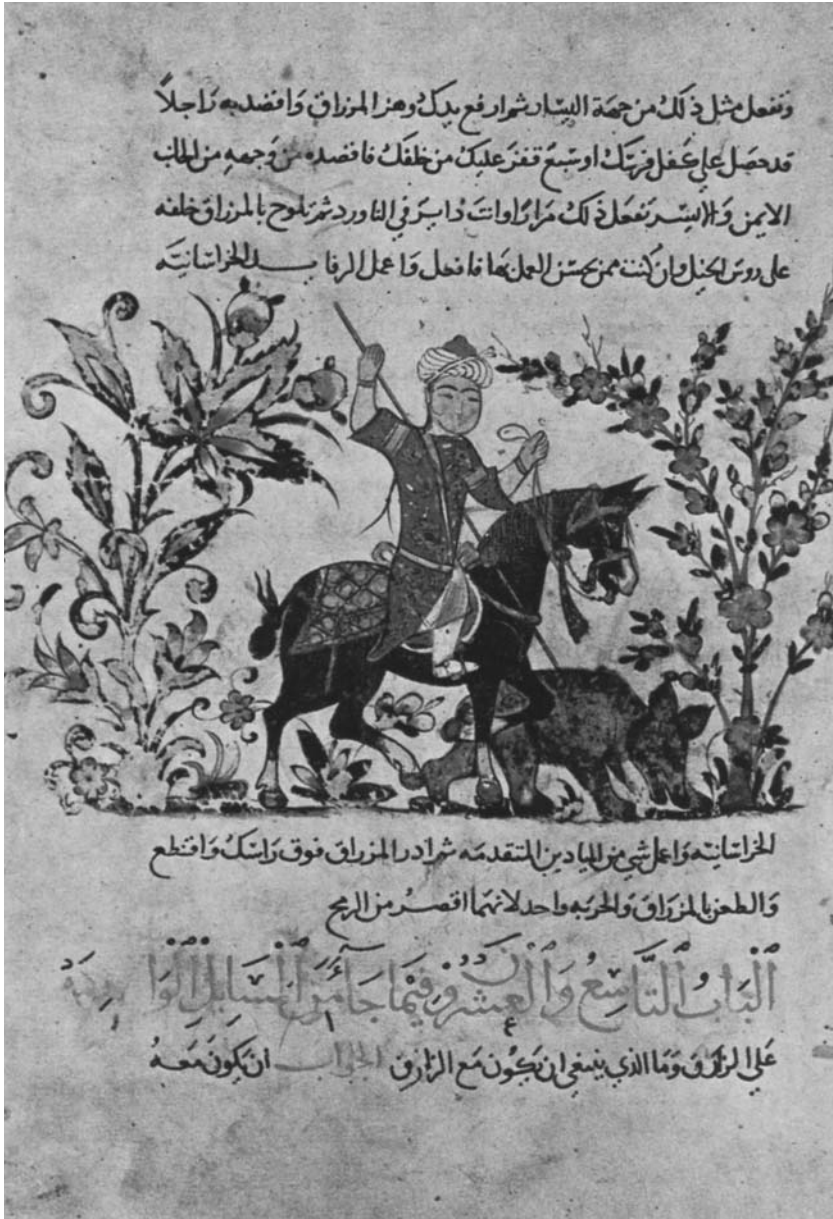 وتفعل مثل ذلك من جهة اليسار ثم ارفع يدك وهز المزراق واقصد به راجلا
قد حصل علي كفل فرسك او سبع قفز عليك من خلفك فاقصده من وجهه من الجانب
الايمن والايسر تفعل ذلك مرارا وانت داير في الناورد ثم تلوح بالمزراق خلفه
على روس الخيل وان كنت ممن يحسن العمل بها فافعل واعمل الخراسانيه
الخراسانيه واعمل شي من الميادين المتقدمه ثم ادر المزراق فوق راسك واقتطع
والطعن بالمزراق والحربه واحد لانهما اقصر من الرمح
الباب التاسع والعشرون فيما جآء من المسايل
علي الزارق وما الذي ينبغي ان يكون مع الزارق الجواب ان يكون معه